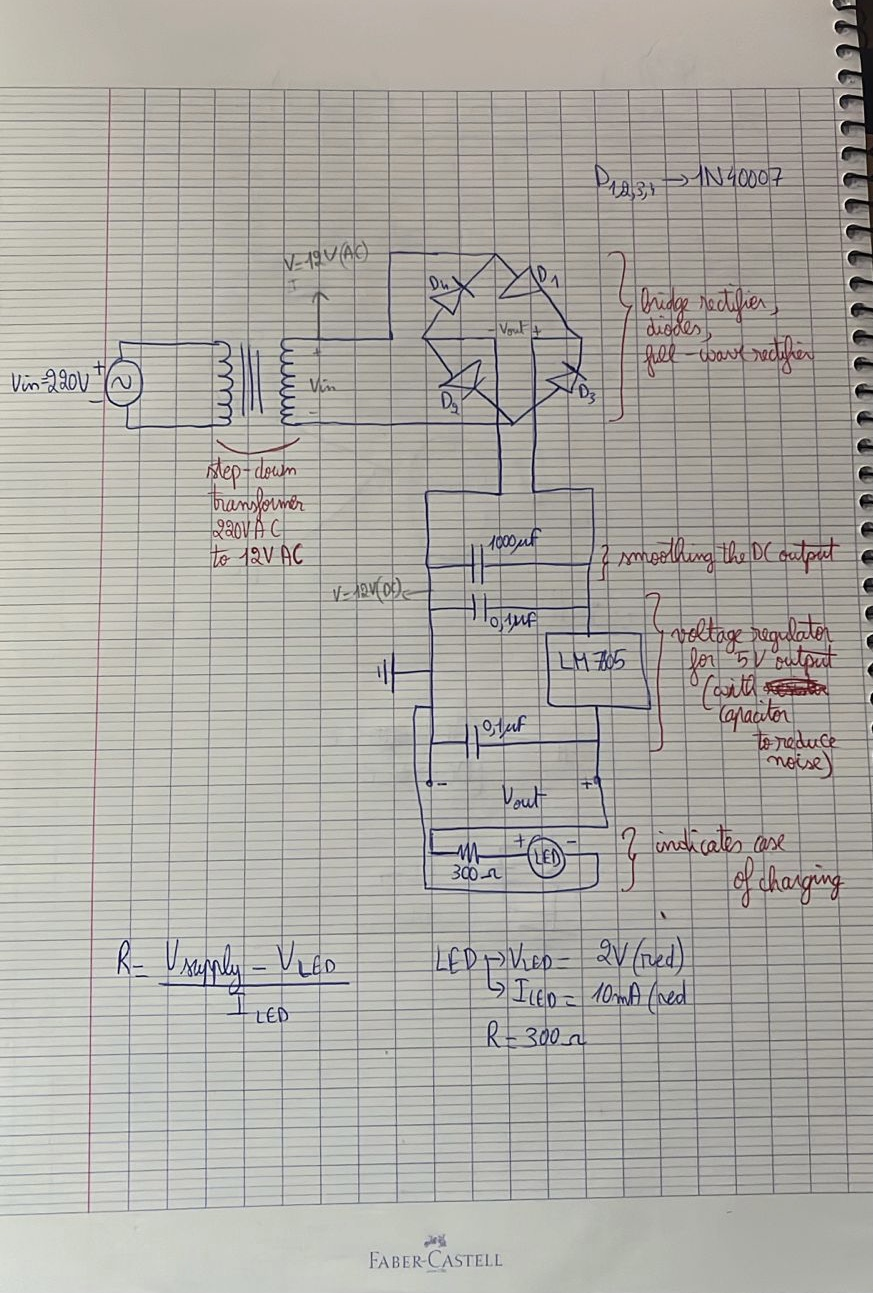 D1,2,3,4 → 1N40007
V=12V(AC)
I
D4
D1
- Vout +
bridge rectifier,
diodes,
full-wave rectifier
Vin=220V
+
-
+
Vin
-
D2
D3
step-down
transformer
220VAC
to 12VAC
1000µF
smoothing the DC output
V=12V(DC)
0,1µF
LM7805
voltage regulator
for 5V output
(with
capacitor
to reduce
noise)
0,1µF
- Vout +
300Ω
+ LED -
indicates case
of charging
R = Vsupply - VLED
ILED
LED → VLED = 2V (red)
→ ILED = 10mA (red
R = 300Ω
FABER-CASTELL